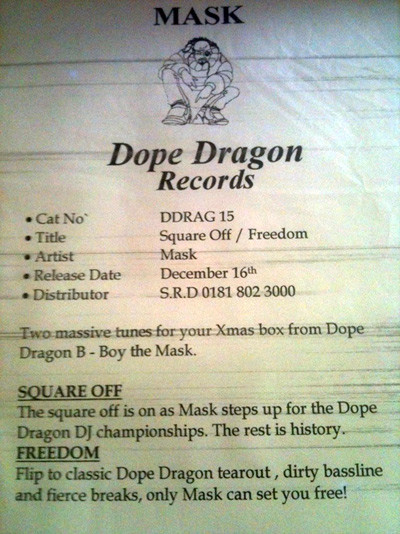 MASK
Dope Dragon
Records
• Cat No` DDRAG 15
• Title Square Off / Freedom
• Artist Mask
• Release Date December 16th
• Distributor S.R.D 0181 802 3000
Two massive tunes for your Xmas box from Dope
Dragon B - Boy the Mask.
SQUARE OFF
The square off is on as Mask steps up for the Dope
Dragon DJ championships. The rest is history.
FREEDOM
Flip to classic Dope Dragon tearout , dirty bassline
and fierce breaks, only Mask can set you free!